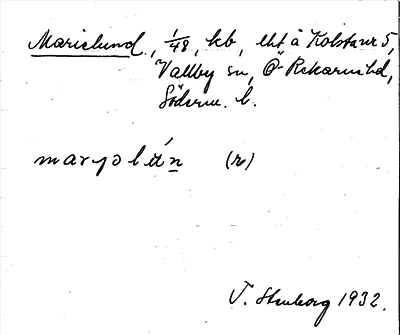 Marielund, 1/48, kb, lht å Kolstaur 5,
Vallby sn, Ö Rekarne hd,
Söderm. l.
(r)
V. Stenborg 1932.